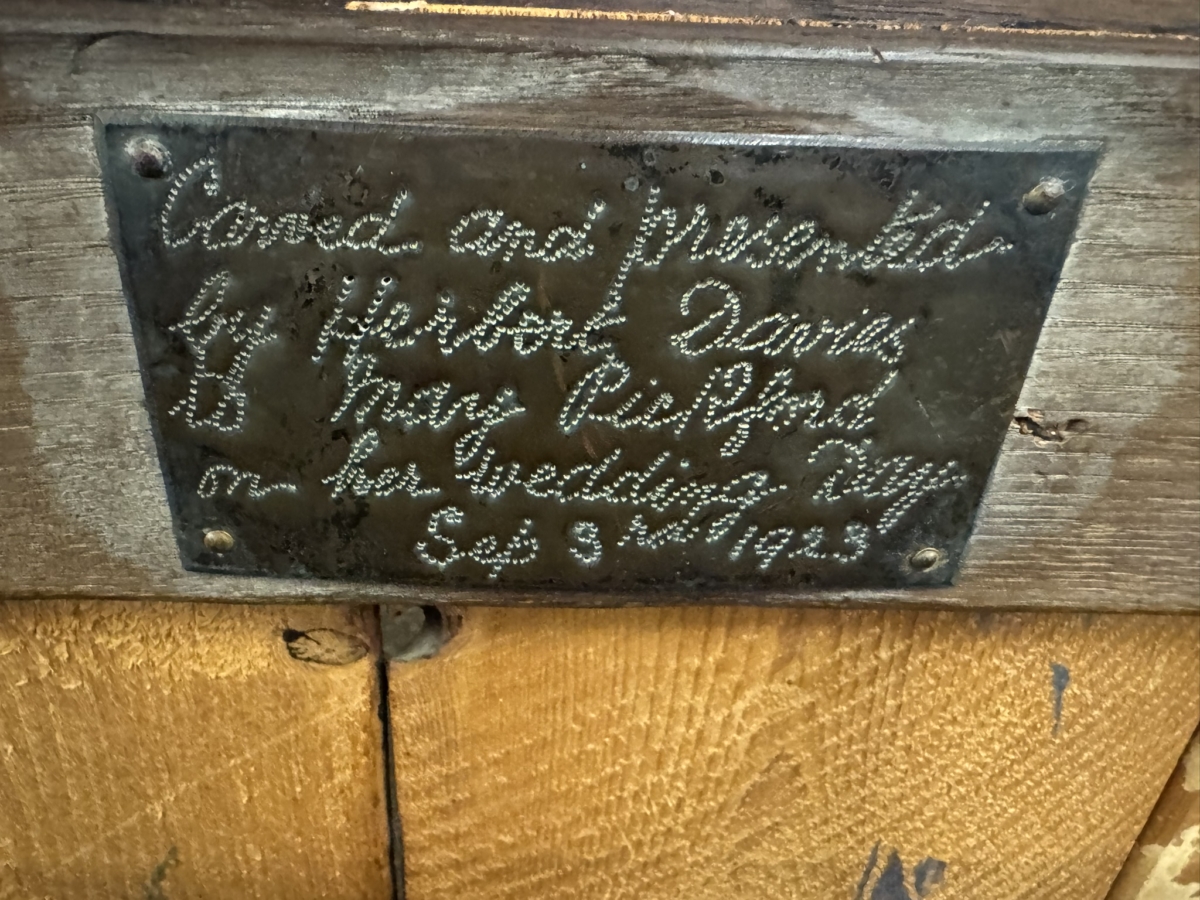 Carved and presented
by Herbert Davis
to Mary Pickford
on her Wedding Day
Sep 3 1923